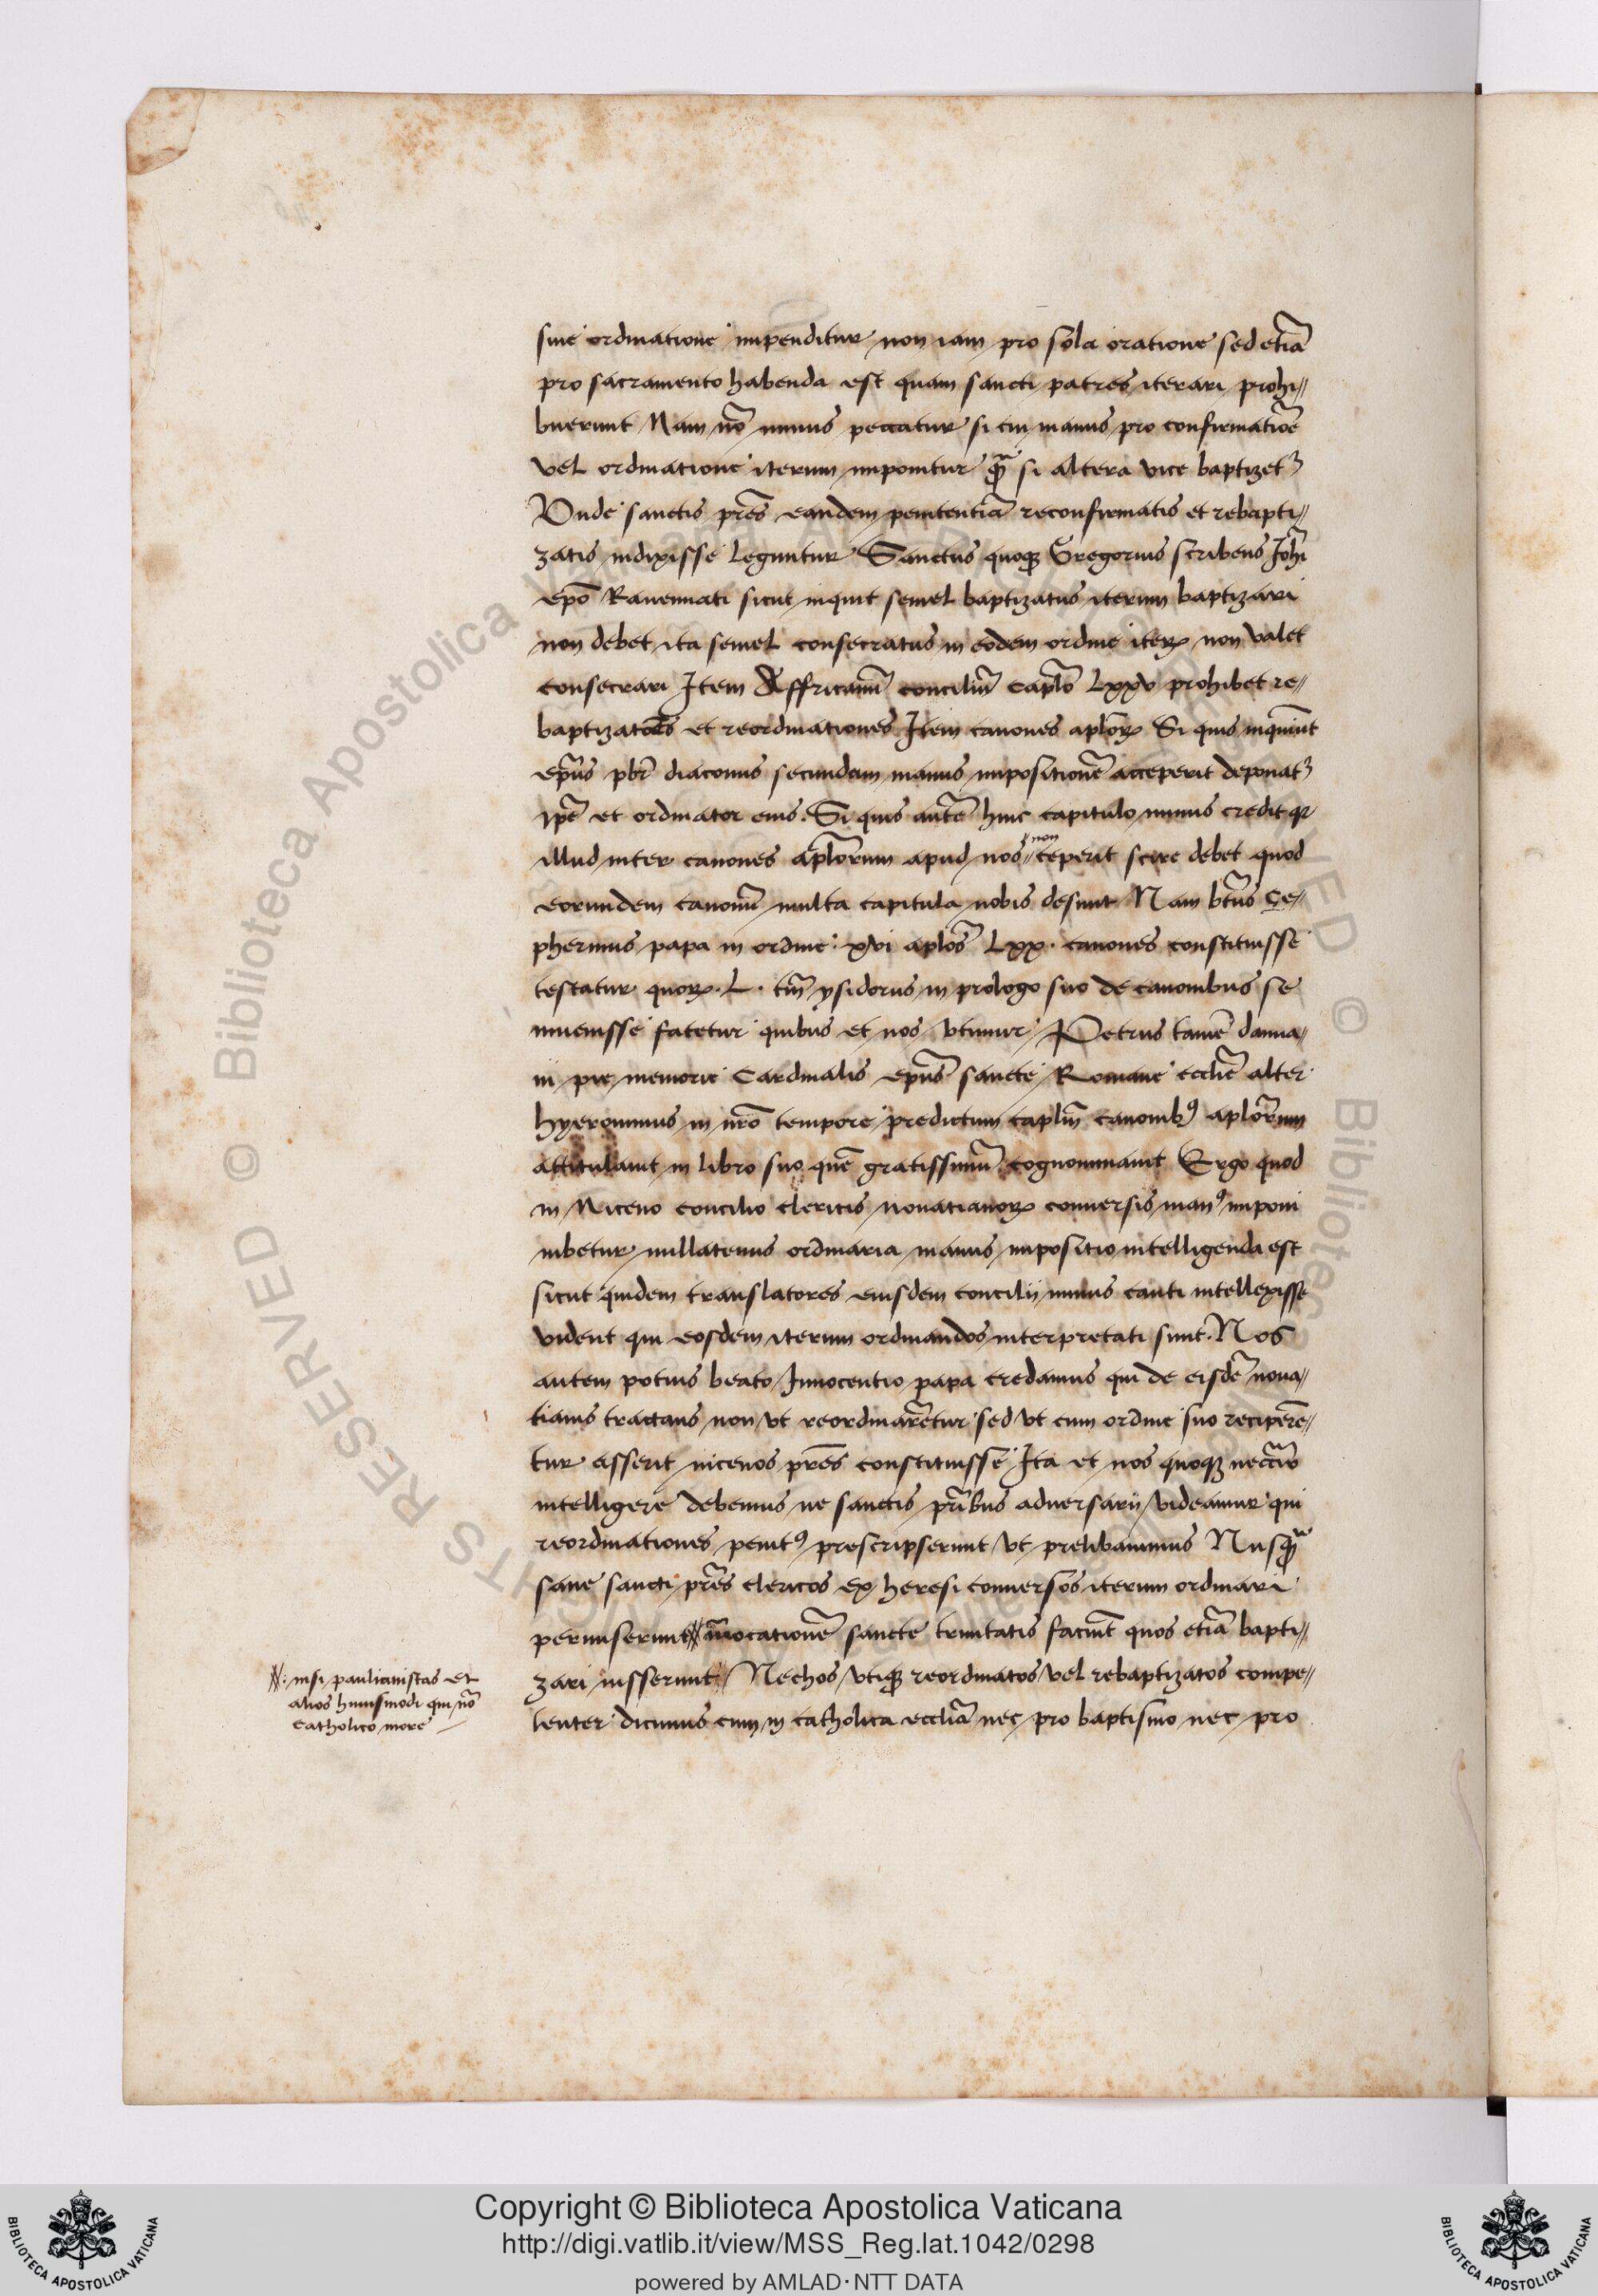 sive ordinatione impenditur non iam pro sola oratione sed etiā
pro sacramento habenda est quam sancti patres iterari prohi//
buerunt Nam nō minus peccatur si cui manus pro confirmatiōe
vel ordinatione iterum imponitur qȝ si altera vice baptizetȝ
Unde sanctis prēs eandem penitentiā reconfirmatis et rebapti//
zatis indixisse leguntur Sanctus quoqȝ Gregorius scribens Johi
epō Ravennati sicut inquit semel baptizatus iterum baptizari
non debet ita semel consecratus in eodem ordine iteꝝ non valet
consecrari Item Affricanū conciliū caplō Lxxv prohibet re//
baptizatōes et reordinationes Item canones aplōꝝ Si quis inquiūt
epūs pbr̄ diaconus secundam manus impositionē acceperit deponatȝ
ipē et ordinator eius. Si quis autē huic capitulo minus credit qꝛ
illud inter canones aplōrum apud nos // non ceperit scire debet quod
eorundem canonū multa capitula nobis desunt Nam btūs Ze//
pherinus papa in ordine xvi aplōs Lxx. canones constituisse
testatur quoꝝ. L. tm̄ ysidorus in prologo suo de canonibus se
invenisse fatetur quibus et nos utimur Petrus tamē damia//
ni pie memorie Cardinalis epūs sancte Romane ecclīe alter
hyeronimus in nrō tempore predictum caplm̄ canonibꝰ aplōrum
attitulavit in libro suo quē gratissimū cognominavit Ergo quod
in Niceno concilio clericis novatianoꝝ conversis manꝰ imponi
iubetur nullatenus ordinaria manus impositio intelligenda est
sicut quidem translatores eiusdem concilii minus cauti intellexisse
vident qui eosdem iterum ordinandos interpretati sunt. Nos
autem potius beato Innocentio papa credamus qui de eisdē nova//
tianis tractans non ut reordinarētur sed ut cum ordine suo reciperē//
tur asserit nicenos prēs constituisse Ita et nos quoqȝ necc̄rio
intelligere debemus ne sanctis pr̄ibus adversarii videamur qui
reordinationes penitꝰ prescripserunt ut prelibavimus Nusqȝ
sane sancti prēs clericos ex heresi conversos iterum ordinari
permiserunt invocationē sancte trinitatis faciūt quos etiā bapti//
zari iusserunt // Nec hos utiqȝ reordinatos vel rebaptizatos compe//
tenter dicimus cum in catholica ecclīa nec pro baptismo nec pro
: nisi paulianistas et
alios huiusmodi qui nō
catholico more
Copyright © Biblioteca Apostolica Vaticana
http://digi.vatlib.it/view/MSS_Reg.lat.1042/0298
powered by AMLAD·NTT DATA
BIBLIOTECA APOSTOLICA VATICANA
BIBLIOTECA APOSTOLICA VATICANA